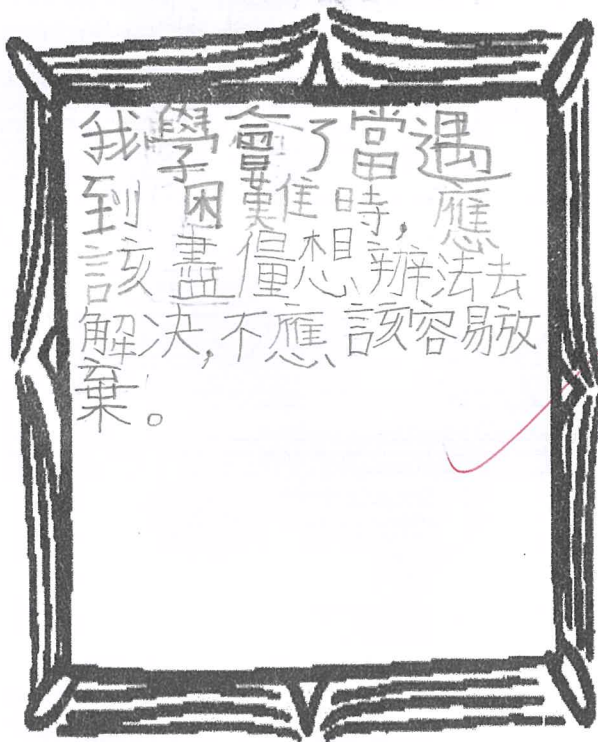 我學會了當遇
到困難時,應
該盡僵想辦法去
解決,不應該容易放
棄。